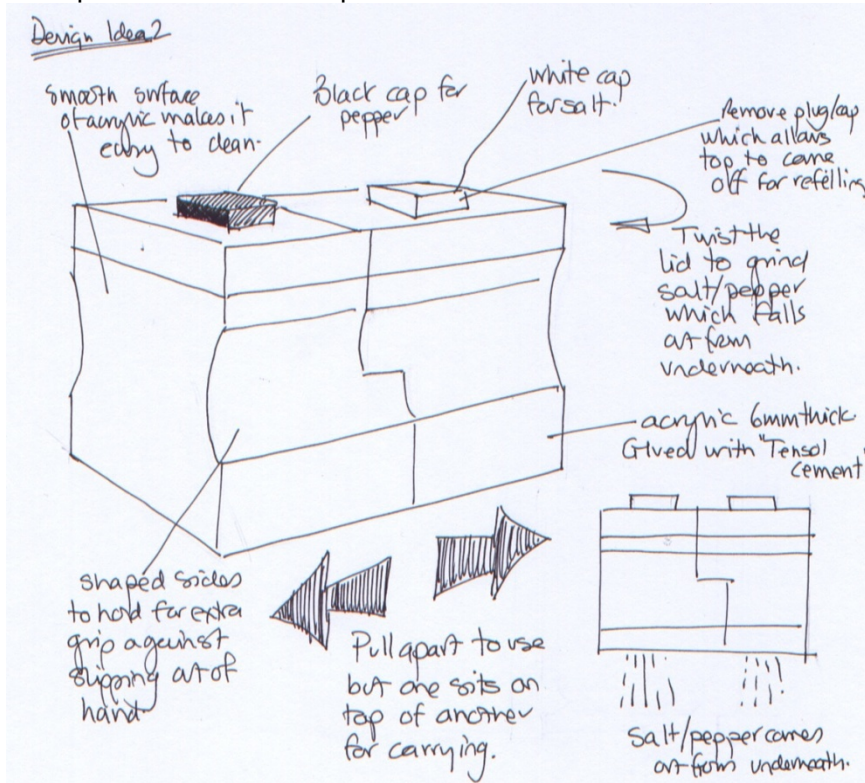 Design Idea 2
smooth surface
of acrylic makes it
easy to clean.
Black cap for
pepper
white cap
for salt.
Remove plug/cap
which allows
top to come
off for refilling
Twist the
lid to grind
salt/pepper
which falls
out from
underneath.
acrylic 6mm thick.
Glued with "Tensol
cement"
shaped sides
to hold for extra
grip against
slipping out of
hand
Pull apart to use
but one sits on
top of another
for carrying.
Salt/pepper comes
out from underneath.